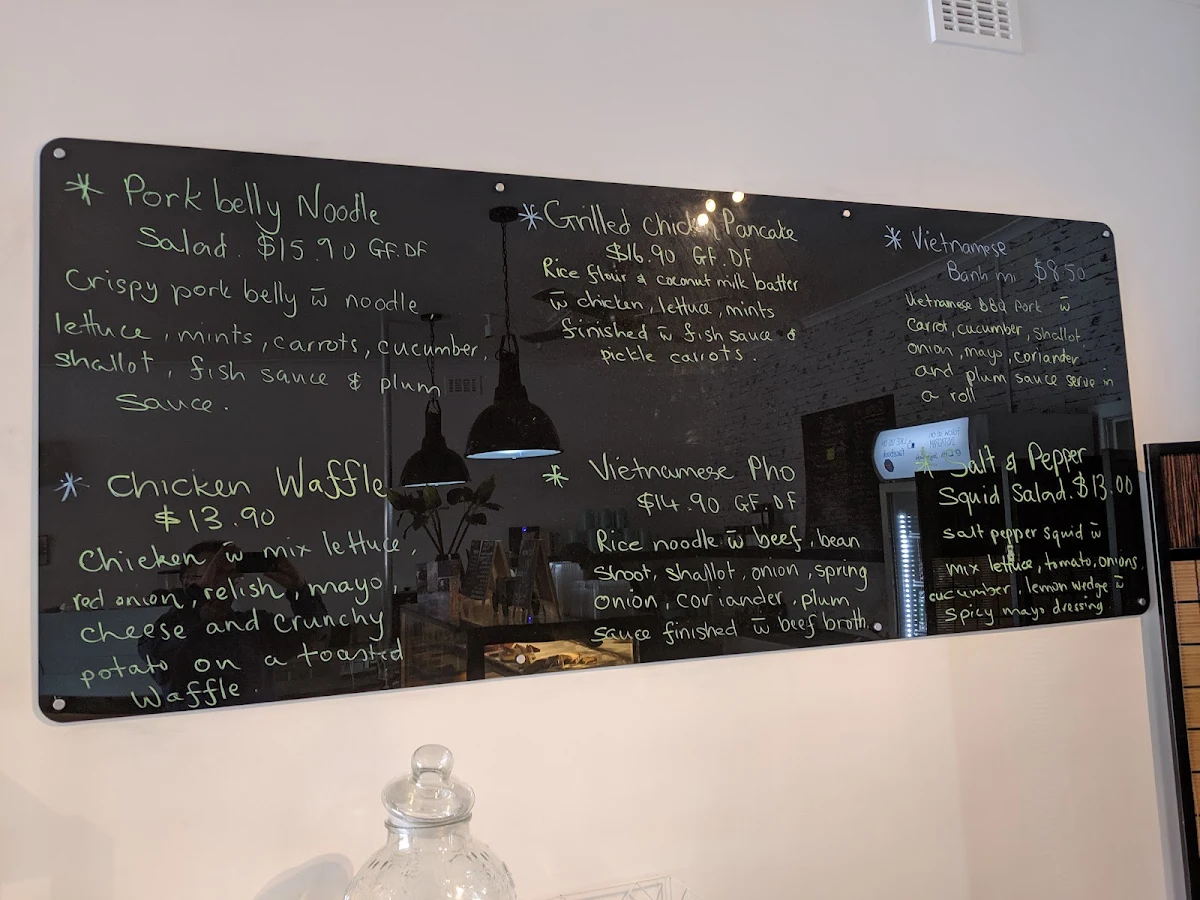 * Pork belly Noodle
Salad. $15.90 GF.DF
Crispy pork belly w̄ noodle
lettuce, mints, carrots, cucumber,
shallot, fish sauce & plum
sauce.
* Grilled Chicken Pancake
$16.90 GF.DF
Rice flour & coconut milk batter
w̄ chicken, lettuce, mints
finished w̄ fish sauce &
pickle carrots.
* Vietnamese
Banh mi $8.50
Vietnamese BBQ pork w̄
carrot, cucumber, shallot
onion, mayo, coriander
and plum sauce serve in
a roll
* Chicken Waffle
$13.90
Chicken w̄ mix lettuce,
red onion, relish, mayo,
cheese and crunchy
potato on a toasted
Waffle.
* Vietnamese Pho
$14.90 GF.DF
Rice noodle w̄ beef, bean
shoot, shallot, onion, spring
onion, coriander, plum
sauce finished w̄ beef broth.
* Salt & Pepper
Squid Salad. $13.00
salt pepper squid w̄
mix lettuce, tomato, onions,
cucumber, lemon wedge w̄
spicy mayo dressing